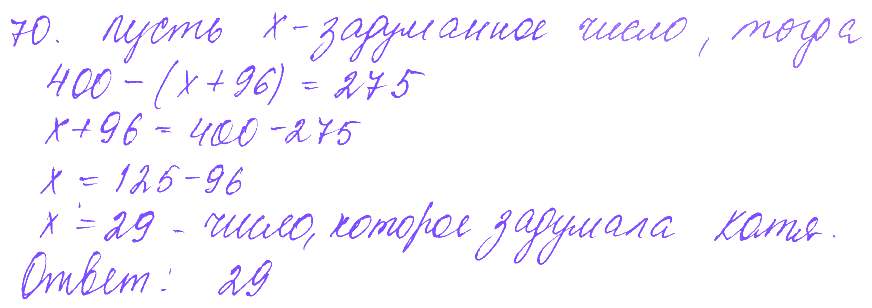 70. Пусть x - задуманное число, тогда
400 - (x + 96) = 275
x + 96 = 400 - 275
x = 125 - 96
x = 29 - число, которое задумала Катя.
Ответ: 29